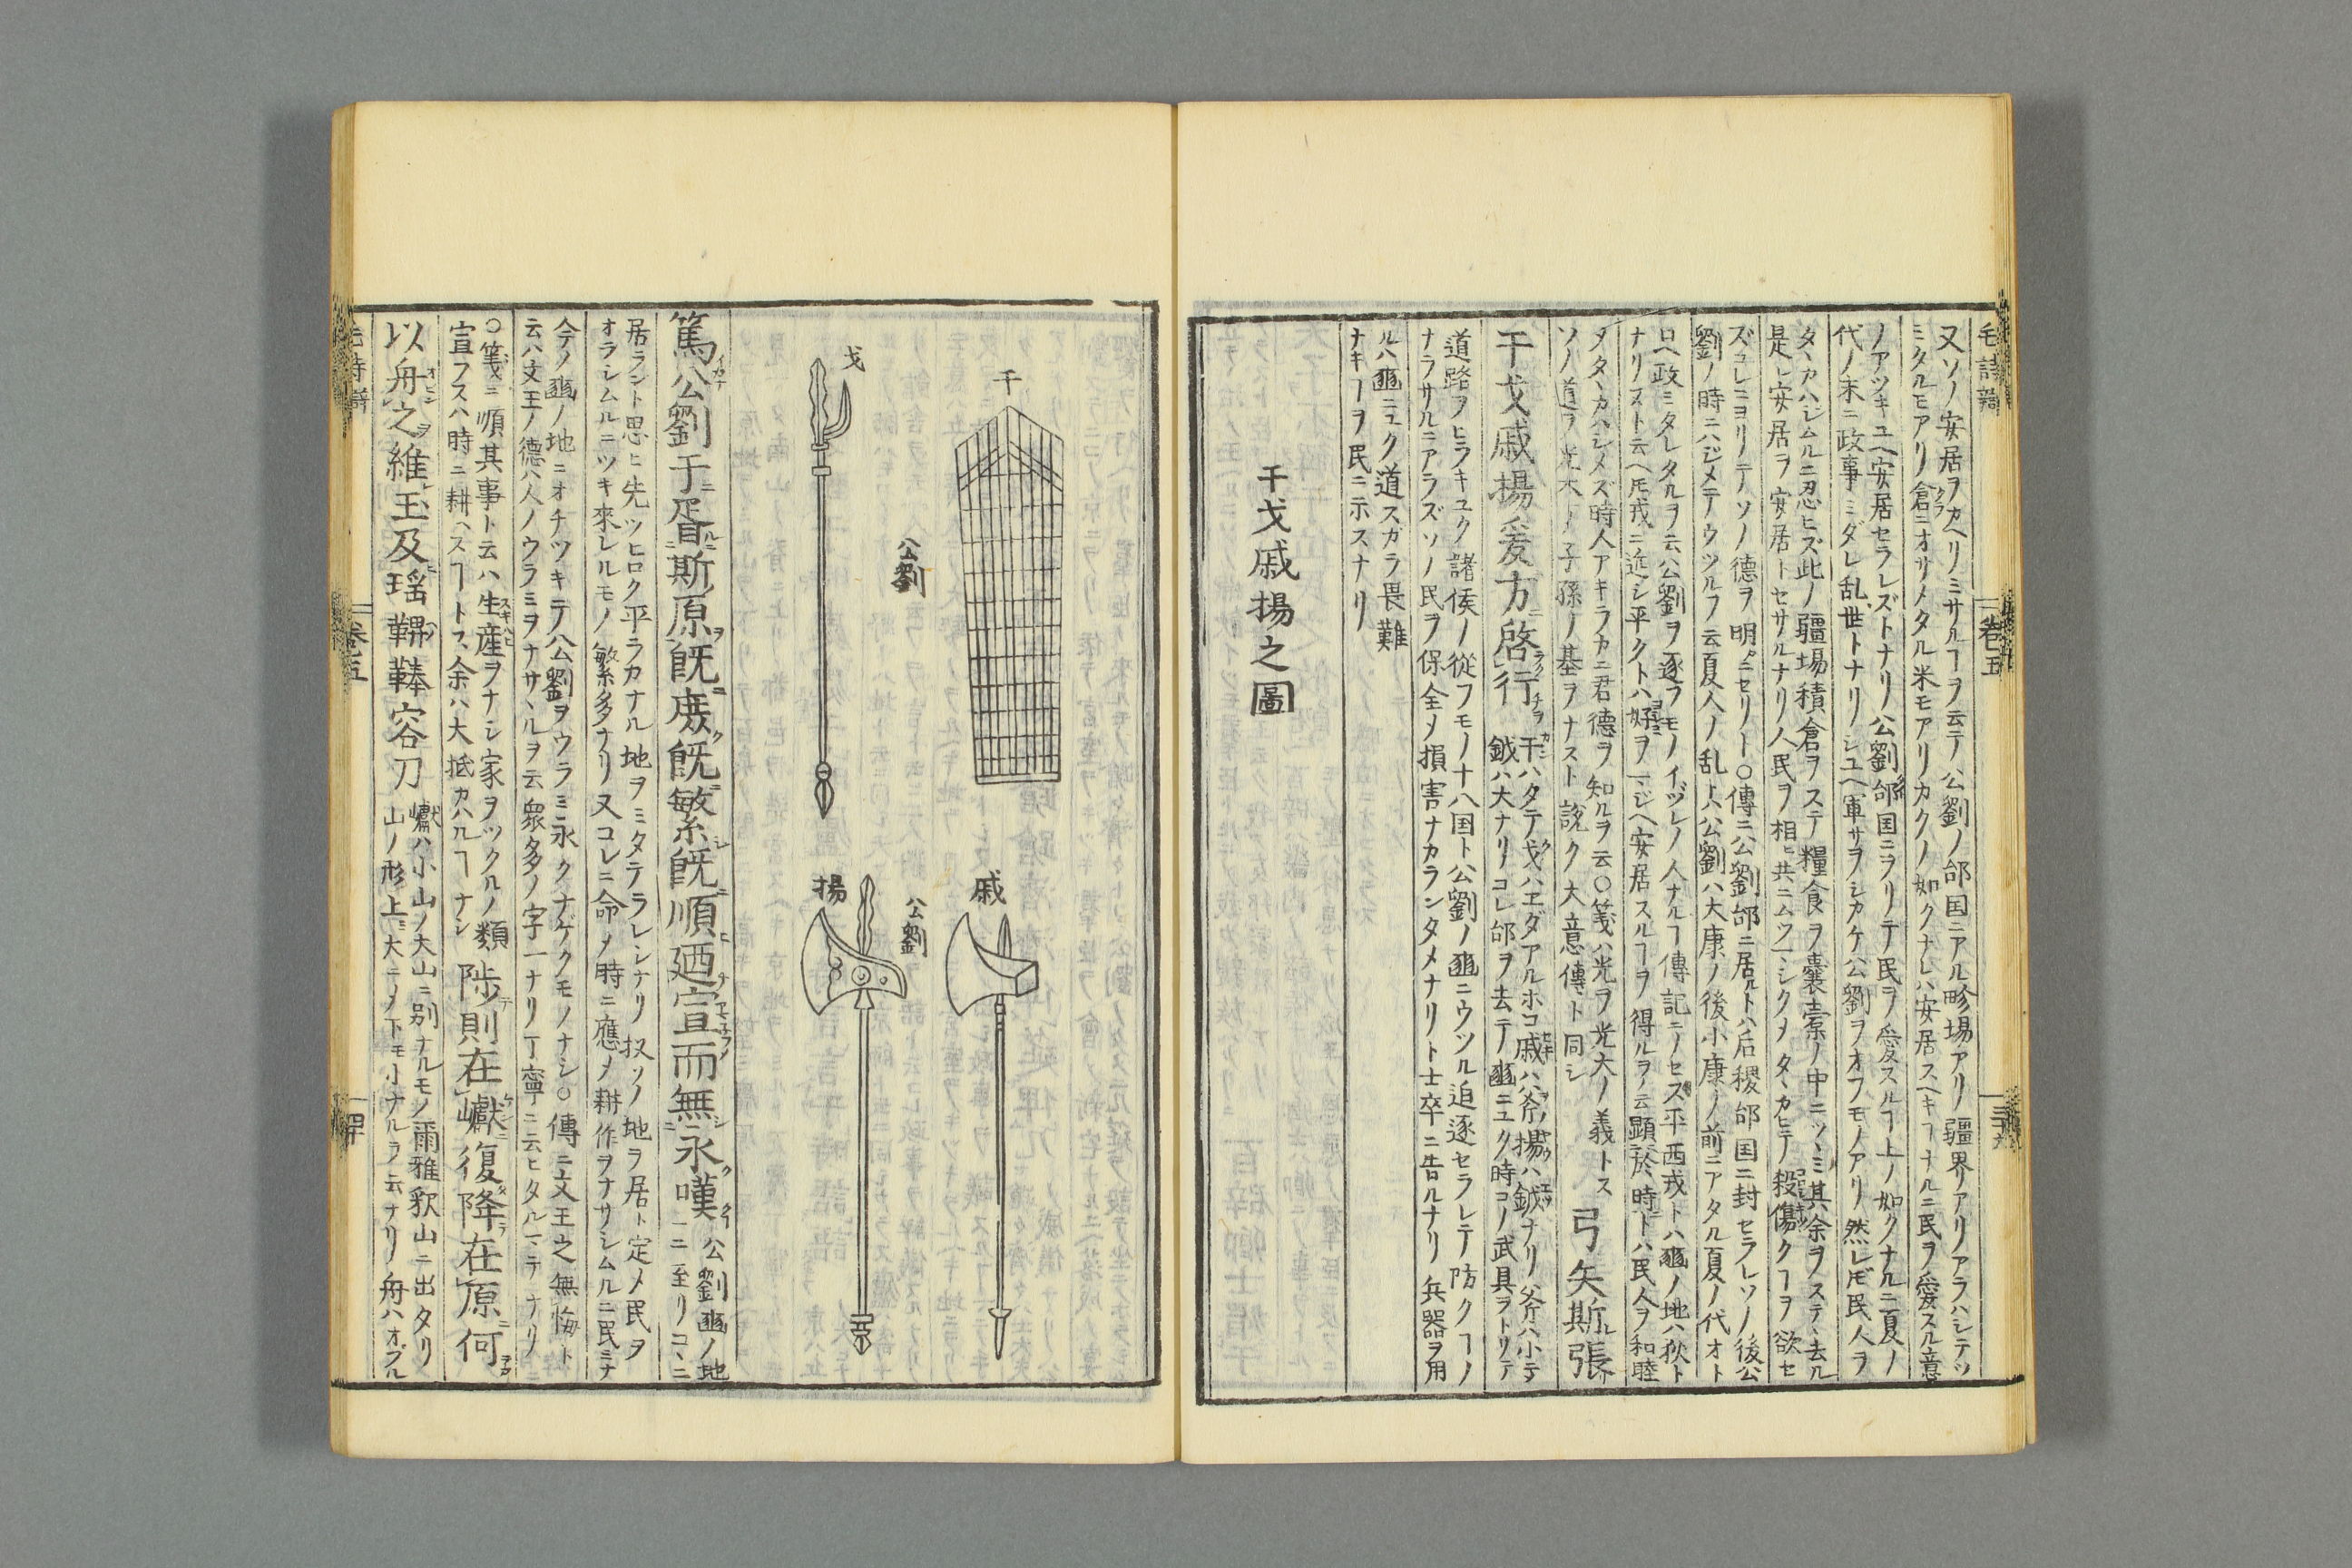 毛詩
卷五
又ソノ安居ヲカヘリミサルヿヲ云テ公劉ノ邰国ニアル畛場アリ疆界アリアラハシテツ
ミタルモアリ倉ニオサメタル米モアリカクノ如クナレハ安居スヘキヿナルニ民ヲ愛スル意
ノアツキユヘ安居セラレズトナリ公劉邰国ニヲリテ民ヲ愛スルヿ上ノ如クナルニ夏ノ
代ノ末ニ政事ミダレ乱世トナリシユヘ軍サヲシカケ公劉ヲオフモノアリ然レ𪜈民人ヲ
タヽカハシムルニ忍ヒズ此ノ疆場積倉ヲステ糧食ヲ橐ノ中ニツヽミ其余ヲステヽ去ル
是レ安居ヲ安居トセサルナリ人民ヲ相ヒ共ニ タヽカヒテ殺傷クヿヲ欲セ
ズコレニヨリテソノ德ヲ明ニセリト○傳ニ公劉邰ニ居ルトハ后稷邰国ニ封セラレソノ後公
劉ノ時ニハジメテウツルフ云夏人ノ乱トハ公劉ハ大康ノ後小康ノ前ニアタル夏ノ代オト
ロヘ政ミタレタルヲ云公劉ヲ逐フモノイヅレノ人ナルヿ傳記ニノセズ平西戎トハ豳ノ地ハ狄ト
ナリスト云ヘ𪜈戎ニ近シ平クトハ好ヲ ジヘ安居スルヿヲ得ルヲ云顕於時トハ民人ヲ和睦
メタヽカハシメズ時人アキラカニ君德ヲ知ルヲ云○箋ハ光ヲ光大ノ義トス
ソノ道ヲ光大ノ子孫ノ基ヲナスト説ク大意傳ト同シ
弓矢斯張
干戈戚揚爰方啓行
干ハタテ戈ハヱダアルホコ戚ハ斧揚ハ鉞ナリ斧ハ小テ
鉞ハ大ナリコレ邰ヲ去テ豳ニユク時コノ武具ヲトリテ
道路ヲヒラキユク諸侯ノ從フモノ十八国ト公劉ノ豳ニウツル追逐セラレテ防クヿノ
ナラサルニアラズソノ民ヲ保全メ損害ナカランタメナリト士卒ニ告ルナリ兵器ヲ用
ルハ豳ニユク道スガラ畏難
ナキヿヲ民ニ示スナリ
干戈戚揚之圖
干
公劉
戈
戚
公劉
揚
篤公劉于胥斯原既庶既繁既順廼宣而無永嘆
公劉豳ノ地
ニ至リコヽニ
居ラント思ヒ先ツヒロク平ラカナル地ヲミタテラレシナリ扨ソノ地ヲ居ト定メ民ヲ
オラシムルニツキ來レルモノ繁多ナリ又コレニ命メ時ニ應メ耕作ヲナサシムルニ民ミナ
今ノ豳ノ地ニオチツキテ公劉ヲウラミ永クナゲクモノナシ○傳ニ文王之無悔ト
云ハ文王ノ德ハ人ノウラミヲナサヽルヲ云衆多ノ字一ナリ丁寧ニ云ヒタルマテナリ
○箋ニ順其事ト云ハ生産ヲナシ家ヲツクルノ類
宣フスハ時ニ耕ヘスヿトス余ハ大抵カハルヿナシ
陟則在巘復降在原何
以舟之維玉及瑤鞞鞛容刀
巘ハ小山ノ大山ニ別ナルモノ爾雅釈山ニ出タリ
山ノ形上大ニノ下モ小ナルヲ云ナリ舟ハオブル
卷五